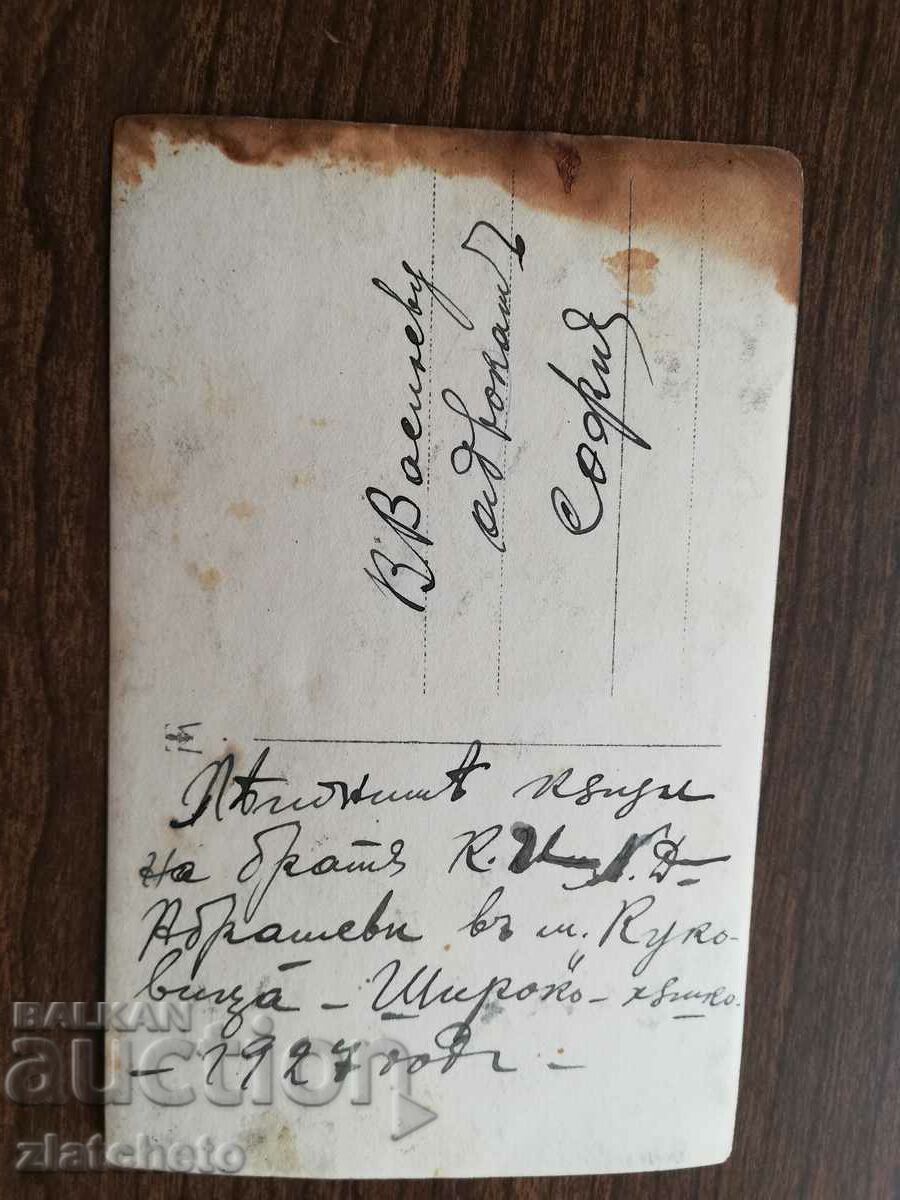 В. Василеву
адвокатъ
София
на братя К. И. Д.
Абрашеви въ м. Куко-
вица – Широко-
– 1927 год –
BALKAN
auction
zlatcheto